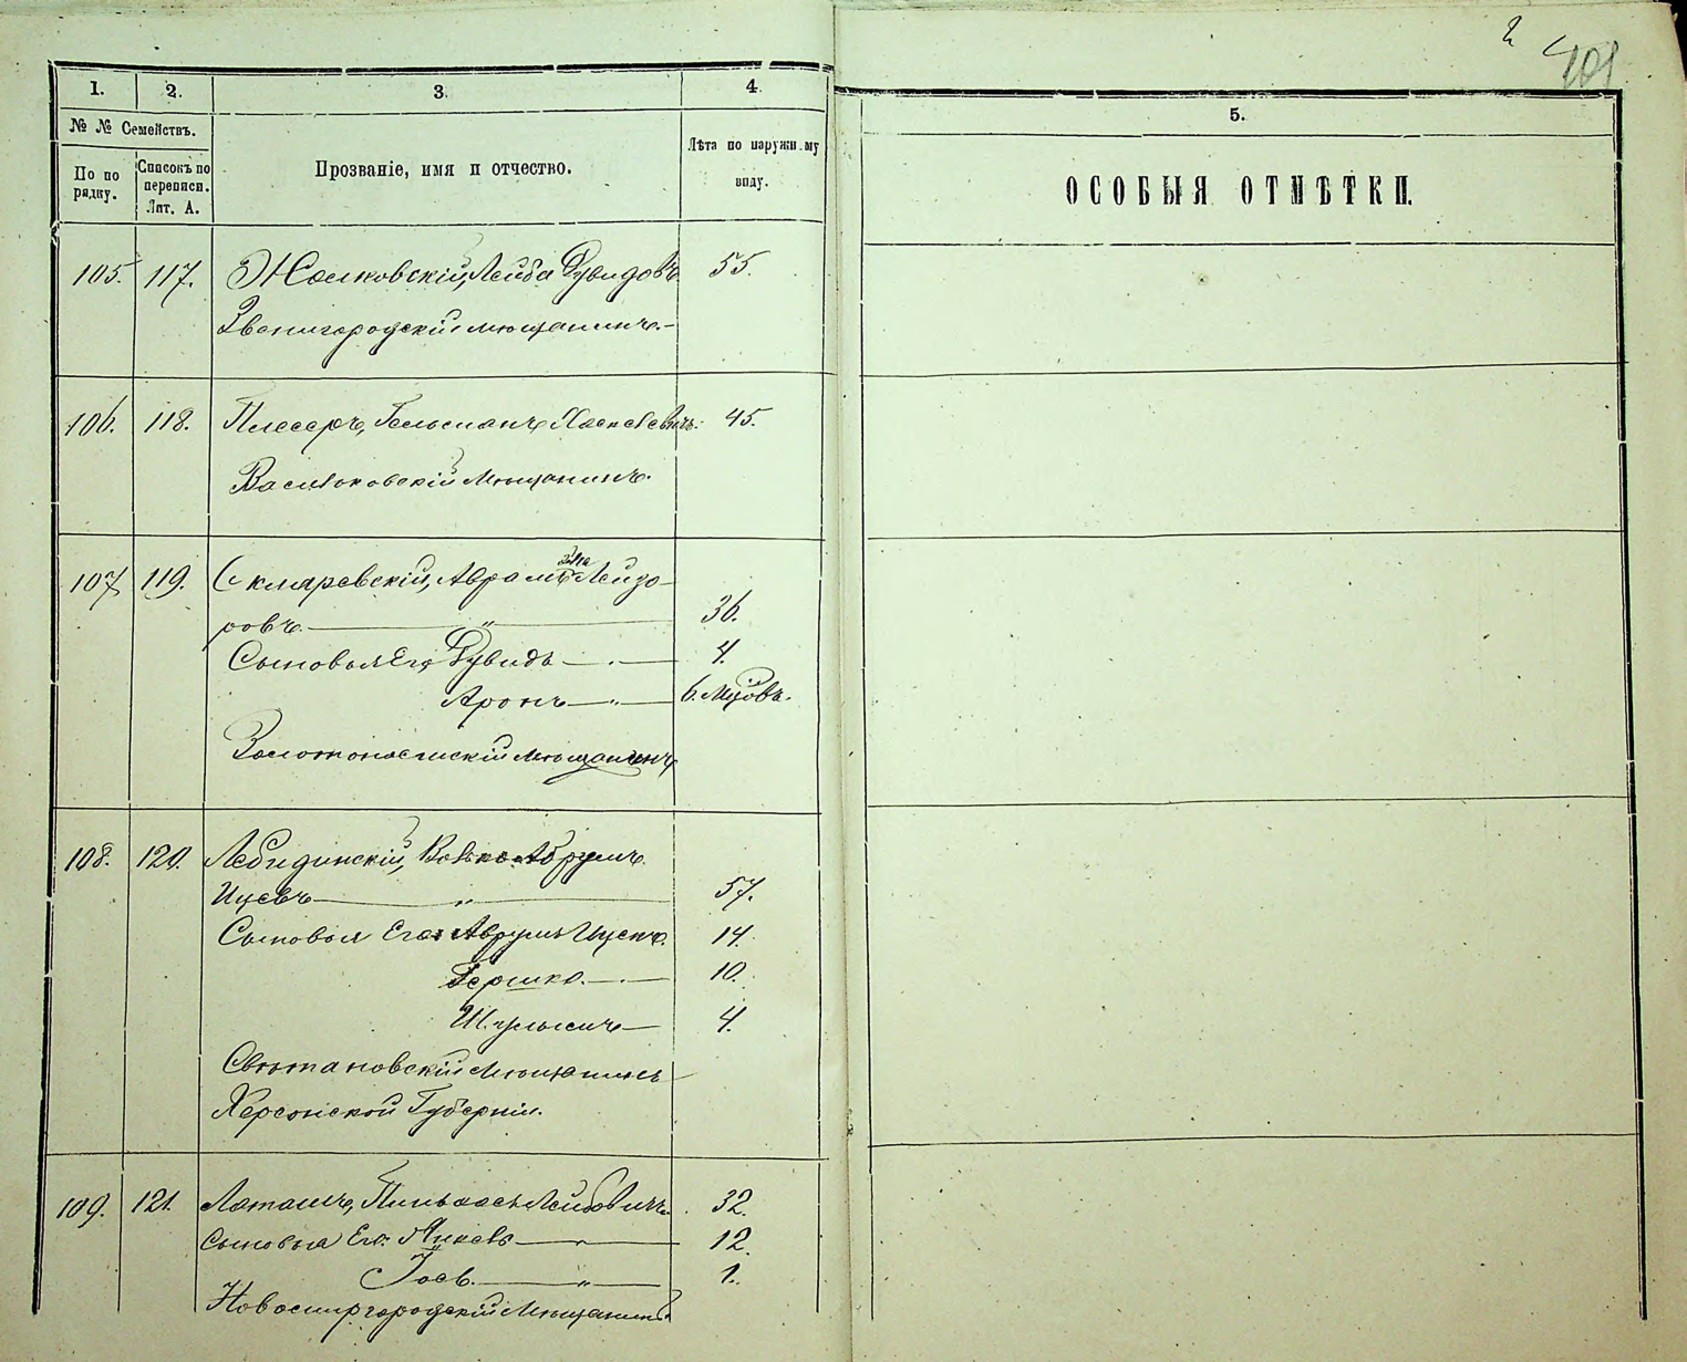 401
1. 2. 3. 4. 5.
№ № Семействъ.
По порядку.
Списокъ по переписи. Лит. А.
Прозваніе, имя и отчество.
Лѣта по наружн.му виду.
ОСОБЫЯ ОТМѢТКИ.
105. 117. Жалковскій, Лейба Дувидовъ. 55.
Звенигородскій мѣщанинъ.-
106. 118. Плесеръ, Гельманъ 45.
Васильковскій Мѣщанинъ.
107 119. Скляревскій, Аврамъ Лейзо-
ровъ. — " — 36.
Сыновья Его Дувидъ — . — 4.
Аронъ — " — 6. Мцовъ.
Золотоношскій Мѣщанинъ
108. 120. Лебидинскій, Волько-Абрумъ
Ицевъ — " — 57.
Сыновья Его: Аврумъ Ицекъ. 14.
Гершко. — . — 10.
Шулымъ — 4.
Мѣщанинъ
Херсонской Губерніи.
109. 121. Латашъ, Пинькасъ Лейбовичъ. 32.
Сыновья Его: Янкевъ — " — 12.
Іосъ. — " — 1.
Новомиргородскій Мѣщанинъ